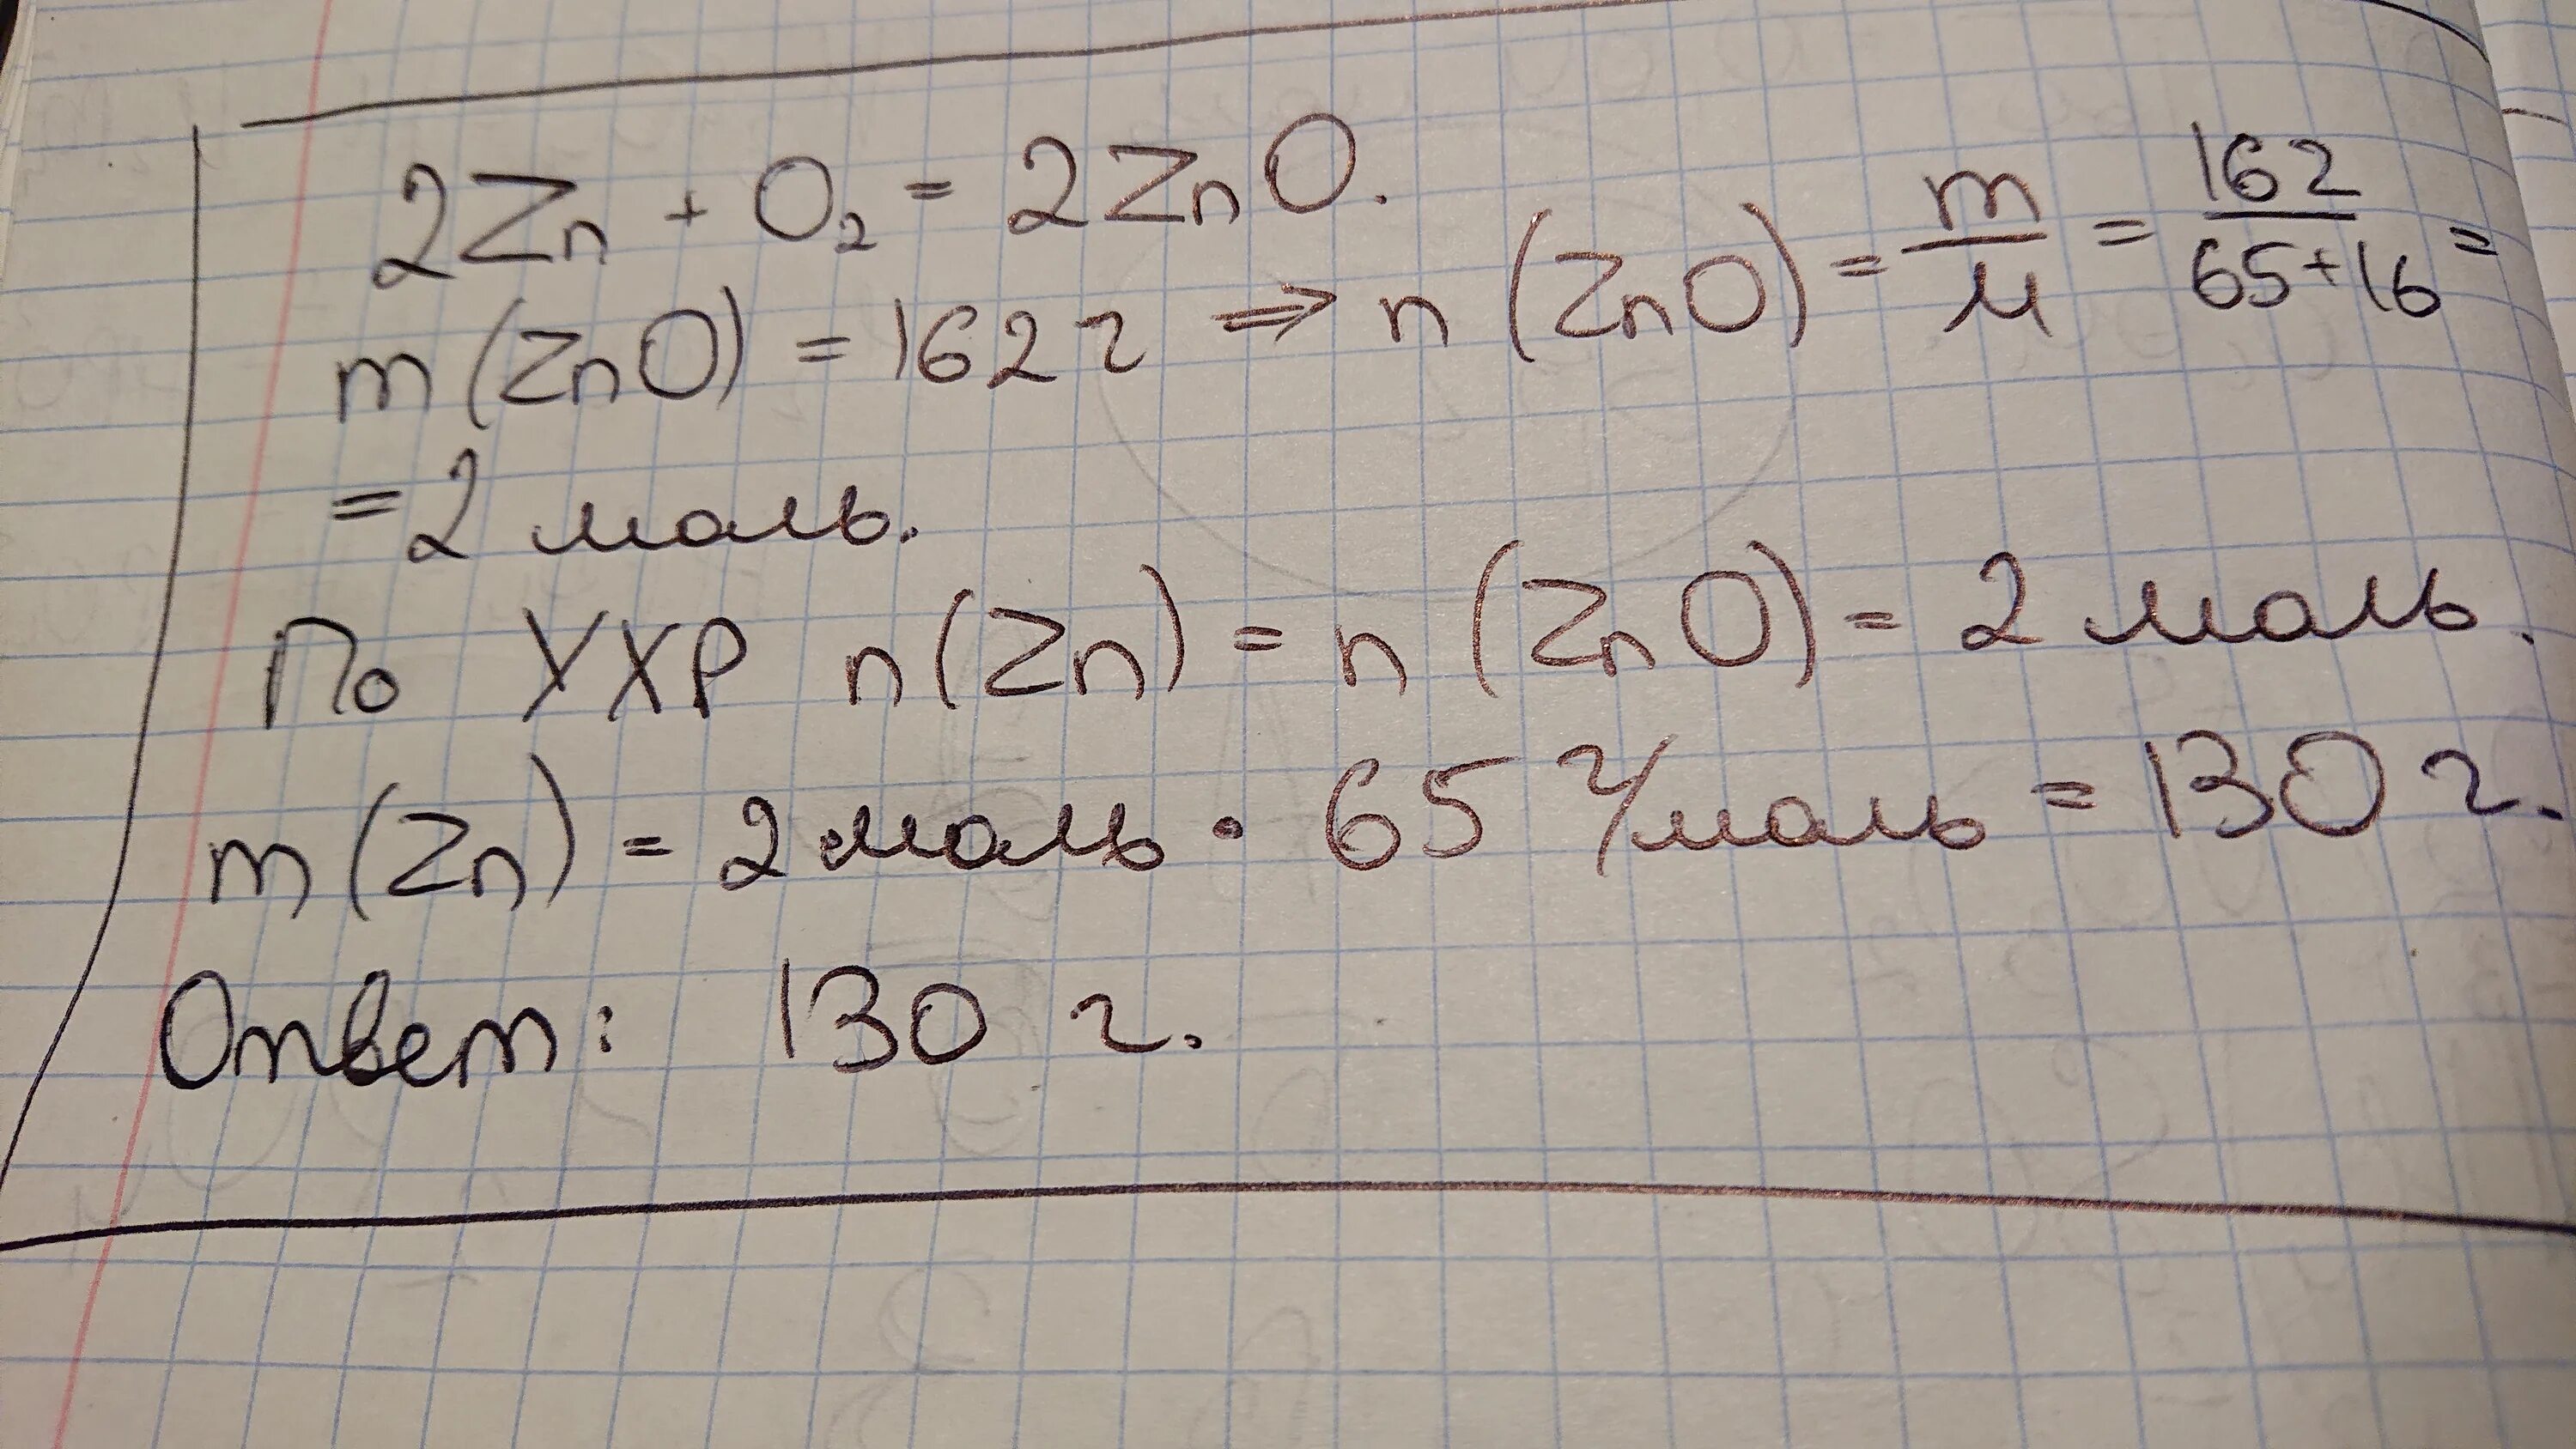 2Zn + O₂ = 2ZnO.
m(ZnO) = 162 г ⇒ n(ZnO) = m/M = 162/(65+16) =
= 2 моль.
По УХР n(Zn) = n(ZnO) = 2 моль.
m(Zn) = 2 моль · 65 г/моль = 130 г.
Ответ: 130 г.